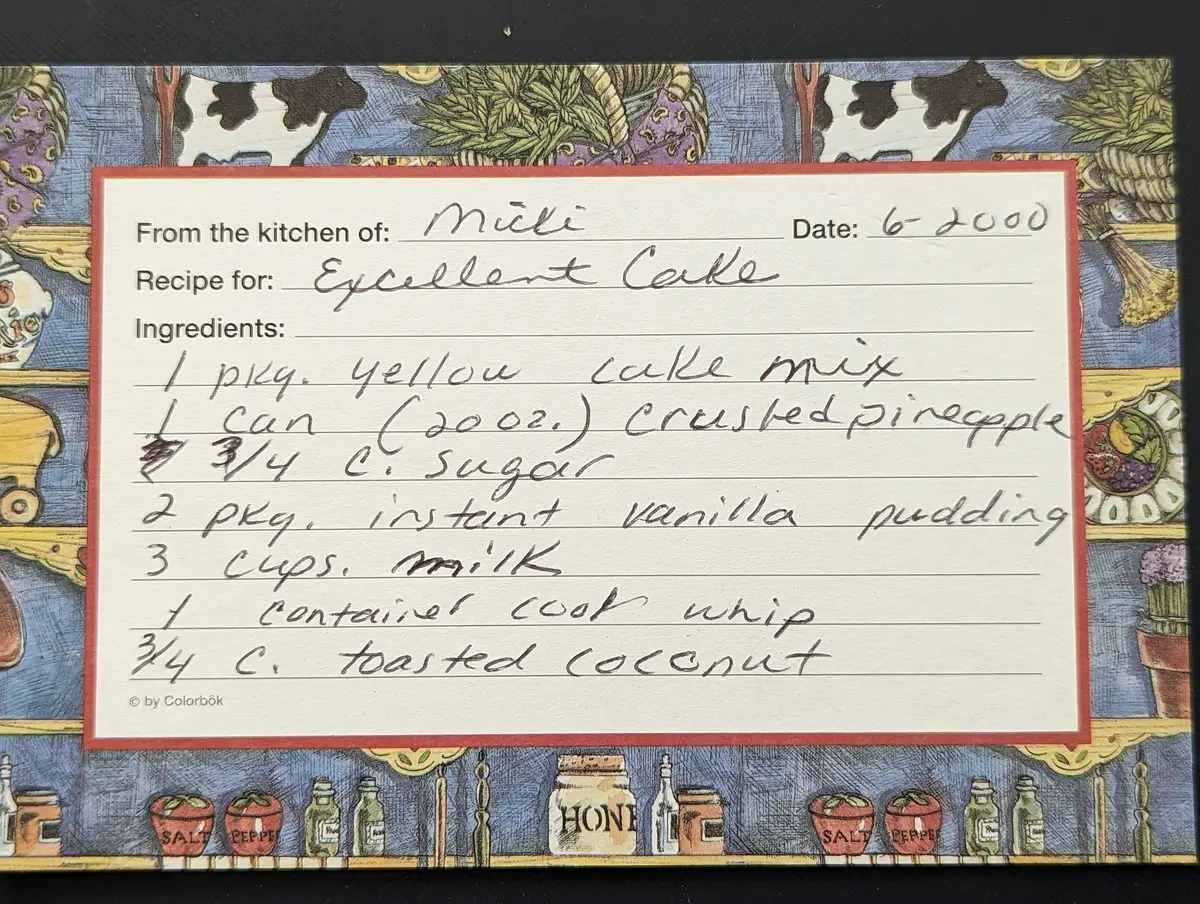 From the kitchen of: Micki Date: 6-2000
Recipe for: Excellent Cake
Ingredients:
1 pkg. yellow cake mix
1 can (20 oz.) crushed pineapple
3/4 c. sugar
2 pkg. instant vanilla pudding
3 cups. milk
1 container cool whip
3/4 c. toasted coconut
© by Colorbök
HONE
SALT PEPPER SALT PEPPER